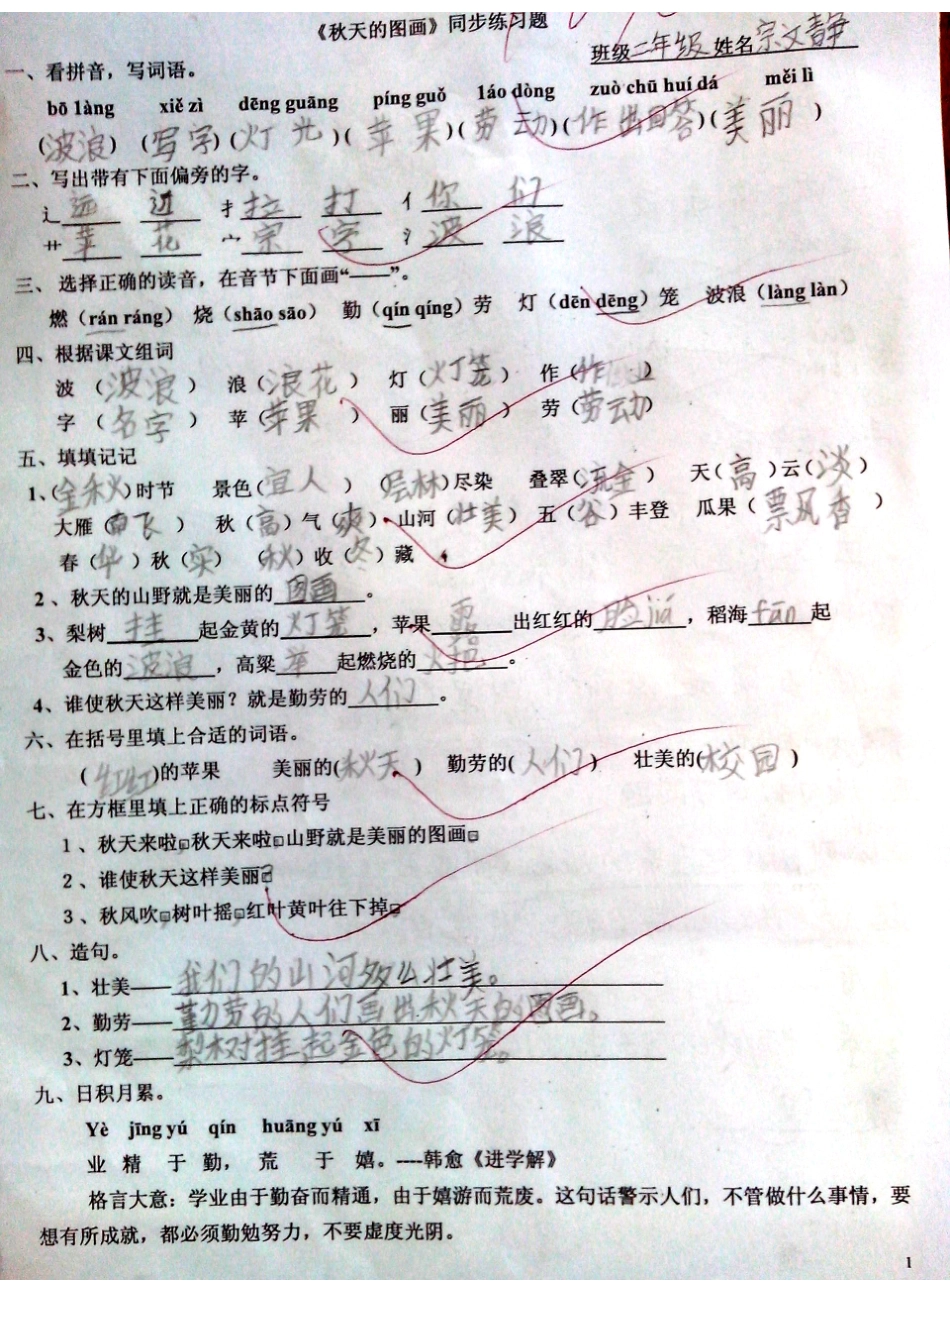 《秋天的图画》同步练习题
班级二年级 姓名宗文静
一、看拼音，写词语。
bō làng xiě zì dēng guāng píng guǒ láo dòng zuò chū huí dá měi lì
(波浪) (写字) (灯光)(苹果)(劳动)(作出回答)(美丽)
二、写出带有下面偏旁的字。
辶 远 边 扌 拉 打 亻 你 们
艹 苹 花 宀 宗 字 氵 波 浪
三、选择正确的读音，在音节下面画“——”。
燃（rán ráng） 烧（shāo sāo） 勤（qín qíng）劳 灯（dēn dēng）笼 波浪（làng làn）
四、根据课文组词
波 （波浪） 浪（浪花） 灯（灯笼） 作（作业）
字 （名字） 苹（苹果） 丽（美丽） 劳（劳动）
五、填填记记
1、(金秋)时节 景色(宜人) (层林)尽染 叠翠(流金) 天(高)云(淡)
大雁（南飞） 秋（高）气（爽） 山河（壮美） 五（谷）丰登 瓜果（飘香）
春（华）秋（实） （秋）收（冬）藏
2、秋天的山野就是美丽的 图画 。
3、梨树 挂 起金黄的 灯笼 ，苹果 露 出红红的 脸jiá ，稻海 fān 起
金色的 波浪 ，高粱 举 起燃烧的 火把 。
4、谁使秋天这样美丽？就是勤劳的 人们 。
六、在括号里填上合适的词语。
(红红)的苹果 美丽的(秋天) 勤劳的(人们) 壮美的(校园)
七、在方框里填上正确的标点符号
1、秋天来啦，秋天来啦，山野就是美丽的图画。
2、谁使秋天这样美丽？
3、秋风吹，树叶摇，红叶黄叶往下掉。
八、造句。
1、壮美——我们的山河多么壮美。
2、勤劳——勤劳的人们画出秋天的图画。
3、灯笼——梨树挂起金色的灯笼。
九、日积月累。
Yè jīng yú qín huāng yú xī
业 精 于 勤， 荒 于 嬉。----韩愈《进学解》
格言大意：学业由于勤奋而精通，由于嬉游而荒废。这句话警示人们，不管做什么事情，要
想有所成就，都必须勤勉努力，不要虚度光阴。
1